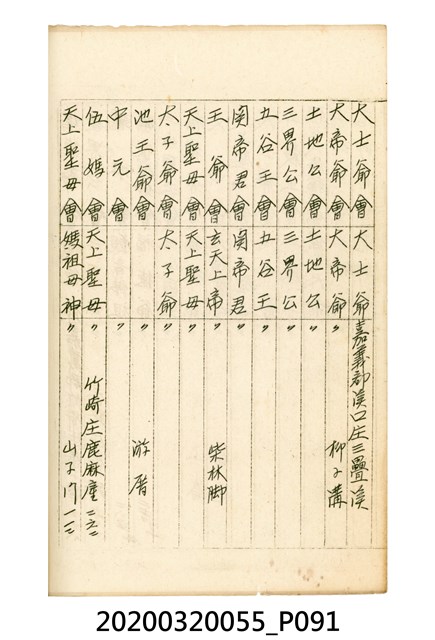 大士爺會 大士爺 嘉義郡溪口庄三疊溪
大帝爺會 大帝爺 〃 柳子溝
土地公會 土地公 〃
三界公會 三界公 〃
五谷王會 五谷王 〃
関帝君會 関帝君 〃
王爺會 玄天上帝 〃 柴林脚
天上聖母會 天上聖母 〃
太子爺會 太子爺 〃
池王爺會 〃 游厝
中元會 〃
伍媽會 天上聖母 〃 竹崎庄鹿麻產
天上聖母會 媽祖母神 〃
20200320055_P091